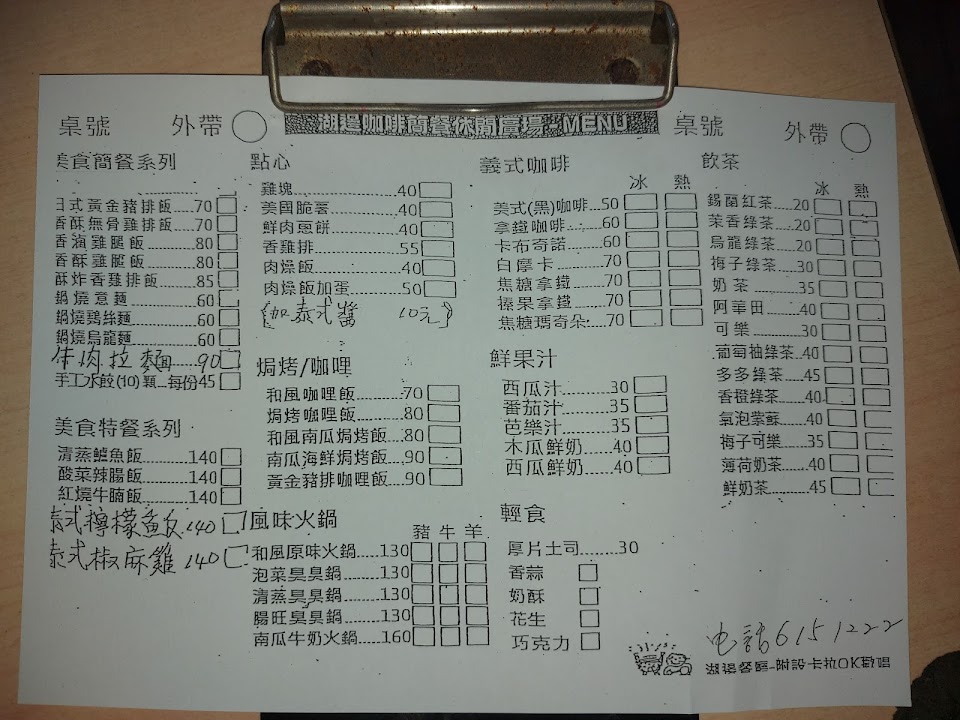 湖邊咖啡簡餐休閒廣場 MENU
桌號 外帶
桌號 外帶
美食簡餐系列
日式黃金豬排飯.....70
香酥無骨雞排飯.....70
香滷雞腿飯.....80
香酥雞腿飯.....80
酥炸香雞排飯.....85
鍋燒意麵.....60
鍋燒鷄絲麵.....60
鍋燒烏龍麵.....60
牛肉拉麵 90
手工水餃(10)顆...每份45
美食特餐系列
清蒸鱸魚飯.....140
酸菜辣腸飯.....140
紅燒牛腩飯.....140
泰式檸檬魚 140
泰式椒麻雞 140
點心
雞塊.....40
美国脆薯.....40
鮮肉蔥餅.....40
香雞排.....55
肉燥飯.....40
肉燥飯加蛋.....50
(加泰式醬 10元)
焗烤/咖哩
和風咖哩飯.....70
焗烤咖哩飯.....80
和風南瓜焗烤飯.....80
南瓜海鮮焗烤飯.....90
黃金豬排咖哩飯.....90
風味火鍋
豬 牛 羊
和風原味火鍋.....130
泡菜臭臭鍋.....130
清蒸臭臭鍋.....130
腸旺臭臭鍋.....130
南瓜牛奶火鍋.....160
義式咖啡
冰 熱
美式(黑)咖啡...50
拿鐵咖啡.....60
卡布奇諾.....60
白摩卡.....70
焦糖拿鐵.....70
榛果拿鐵.....70
焦糖瑪奇朵.....70
鮮果汁
西瓜汁.....30
番茄汁.....35
芭樂汁.....35
木瓜鮮奶.....40
西瓜鮮奶.....40
輕食
厚片土司.....30
香蒜
奶酥
花生
巧克力
飲茶
冰 熱
錫蘭紅茶...20
茉香綠茶...20
烏龍綠茶...20
梅子綠茶...30
奶茶.....35
阿華田.....40
可樂.....30
葡萄柚綠茶...40
多多綠茶.....45
香橙綠茶.....40
氣泡紫蘇.....40
梅子可樂.....35
薄荷奶茶.....40
鮮奶茶.....45
电話6151222
湖邊餐廳-附設卡拉OK歡唱